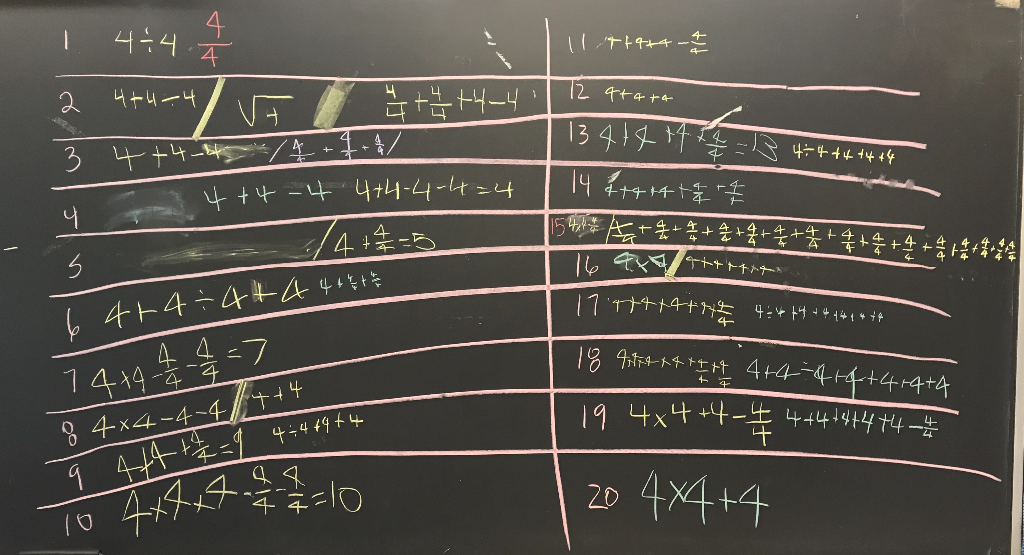 1 4÷4 4/4
2 4+4-4 / √4 4/4+4/4+4-4
3 4+4-4 / 4/4+4/4+4/4 /
4 4+4-4 4+4-4-4=4
5 / 4+4/4=5
6 4+4÷4+4 4+4/4+4/4
7 4+4-4/4-4/4=7
8 4×4-4-4 / 4+4
9 4+4+4/4=9 4÷4+4+4
10 4×4×4-4/4-4/4=10
11 4+4+4-4/4
12 4+4+4
13 4+4+4+4/4=13 4÷4+4+4+4
14 4+4+4+4/4+4/4
15 / 4/4+4/4+4/4+4/4+4/4+4/4+4/4+4/4+4/4+4/4+4/4+4/4+4/4+4/4+4/4
16 4×4 / 4+4+4+4
17 4+4+4+4+4/4 4÷4+4+4+4+4
18 4+4+4+4+4/4+4/4 4+4÷4+4+4+4+4
19 4×4+4-4/4 4+4+4+4+4-4/4
20 4×4+4